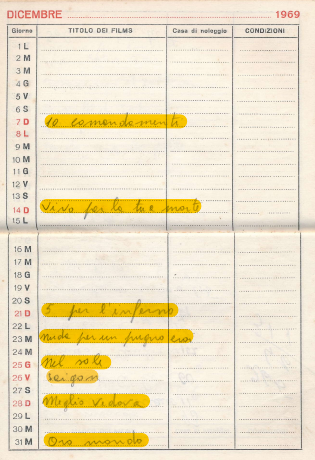 DICEMBRE 1969
Giorno TITOLO DEI FILMS Casa di noleggio CONDIZIONI
1 L
2 M
3 M
4 G
5 V
6 S
7 D 10 comandamenti
8 L
9 M
10 M
11 G
12 V
13 S
14 D Vivo per la tua morte
15 L
16 M
17 M
18 G
19 V
20 S
21 D 5 per l'inferno
22 L
23 M Nuda per un pugno eroi
24 M
25 G Nel sole
26 V Saigon
27 S
28 D Meglio vedova
29 L
30 M
31 M Oro mondo